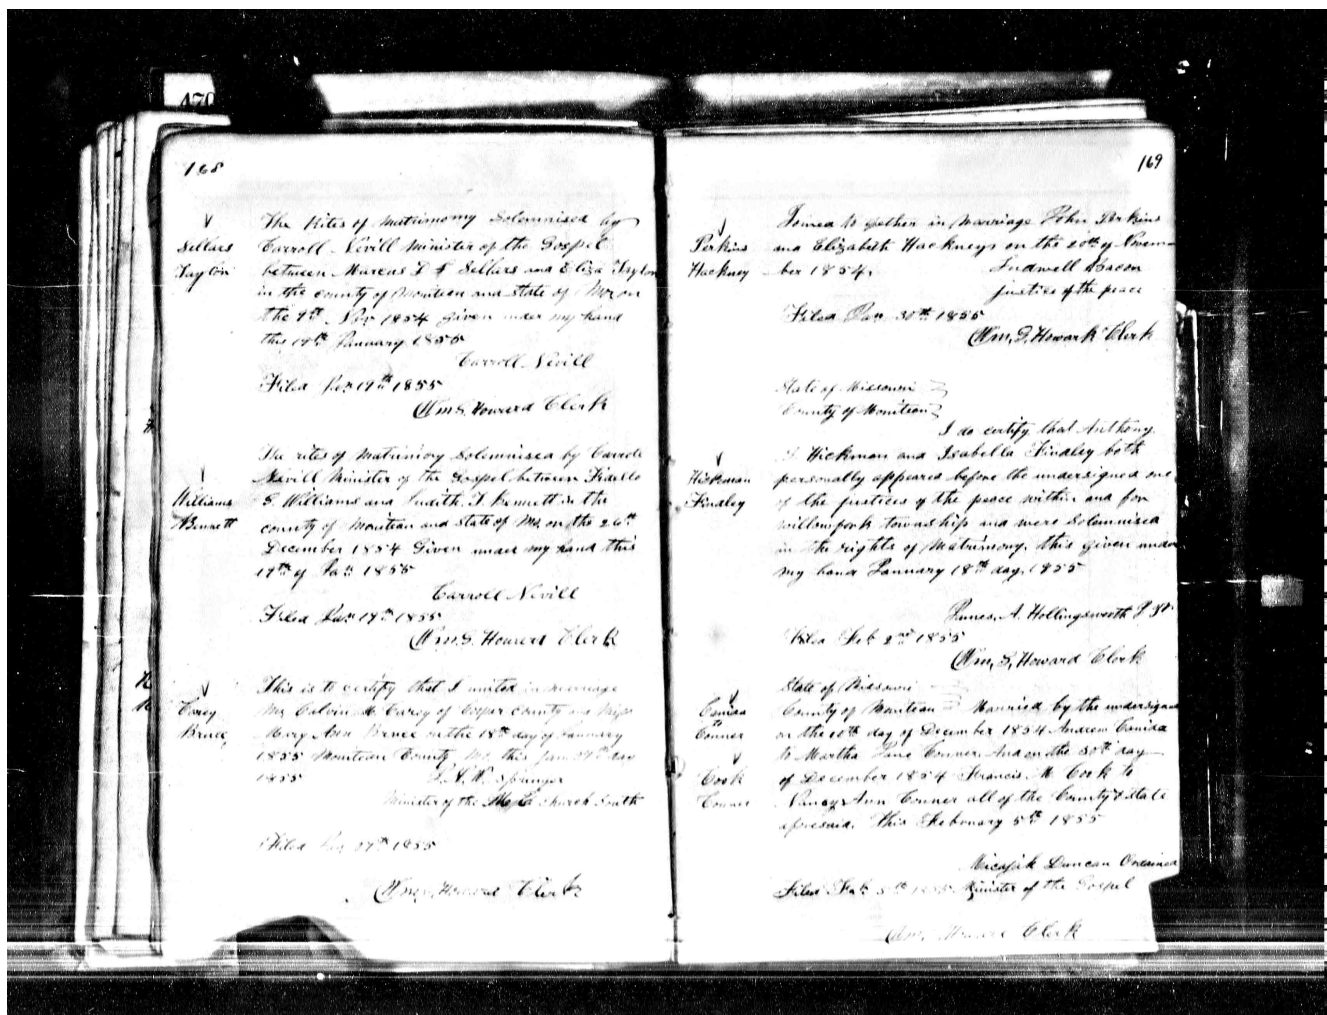 470
168
Sellars
Taylor
The Rites of Matrimony Solemnised by
Carroll Nevill Minister of the Gospel
between Marcus D F Sellars and Eliza Taylor
in the county of Moniteau and state of Mo on
the 9th Nov 1854 given under my hand
this 19th January 1855
Carroll Nevill
Filed Jan 19th 1855
Wm S. Howard Clerk
Williams
Bennett
The rites of Matrimony Solemnised by Carroll
Nevill Minister of the Gospel between Fidello
G. Williams and Judith. T. Bennett in the
county of Moniteau and state of Mo. on the 26th
December 1854 Given under my hand this
19th of Jan 1855
Carroll Nevill
Filed Jan 19th 1855
Wm. S. Howard Clerk
Carey
Bruce
This is to certify that I united in marriage
Mr Calvin M. Carey of Cooper county and Miss
Mary Ann Bruce on the 18th day of January
1855 Moniteau County Mo. this Jan day
1855
Springer
Minister of the M. E. Church South
Filed 1855
Wm S. Howard Clerk
169
Perkins
Hackney
Joined together in marriage John Perkins
and Elizabeth Hackneys on the 20th of Novem
ber 1854.
Ludwell Bacon
justice of the peace
Filed Jan 30th 1855
Wm. S. Howard Clerk
State of Missouri
County of Moniteau
I do certify that Anthony
Hickman
Findley
Hickman and Isabella Findley both
personally appeared before the undersigned one
of the justices of the peace within and for
willowfork township and were Solemnised
in the rights of Matrimony. this given under
my hand January 18th day. 1855
James. A. Hollingsworth J. P.
Filed Feb 2nd 1855
Wm. S. Howard Clerk
State of Missouri
Conner
County of Moniteau Married by the undersigned
on the 10th day of December 1854 Andrew
to Martha Jane Conner. And on the 30th day
Cook
Conner
of December 1854 Francis M Cook to
Nancy Ann Conner all of the County & state
aforesaid. this February 5th 1855
Micajah Duncan Ordained
Filed Feb 5th 1855 Minister of the Gospel
Wm. Howard Clerk